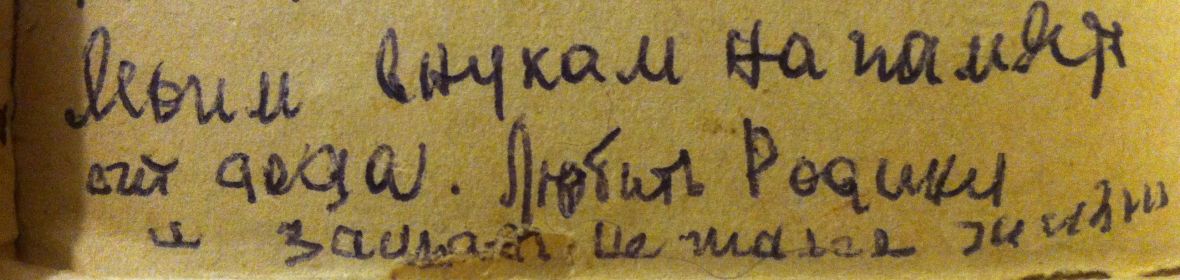 Моим внукам на памят
от деда. Любить Родину
и защищать не жалея жизни